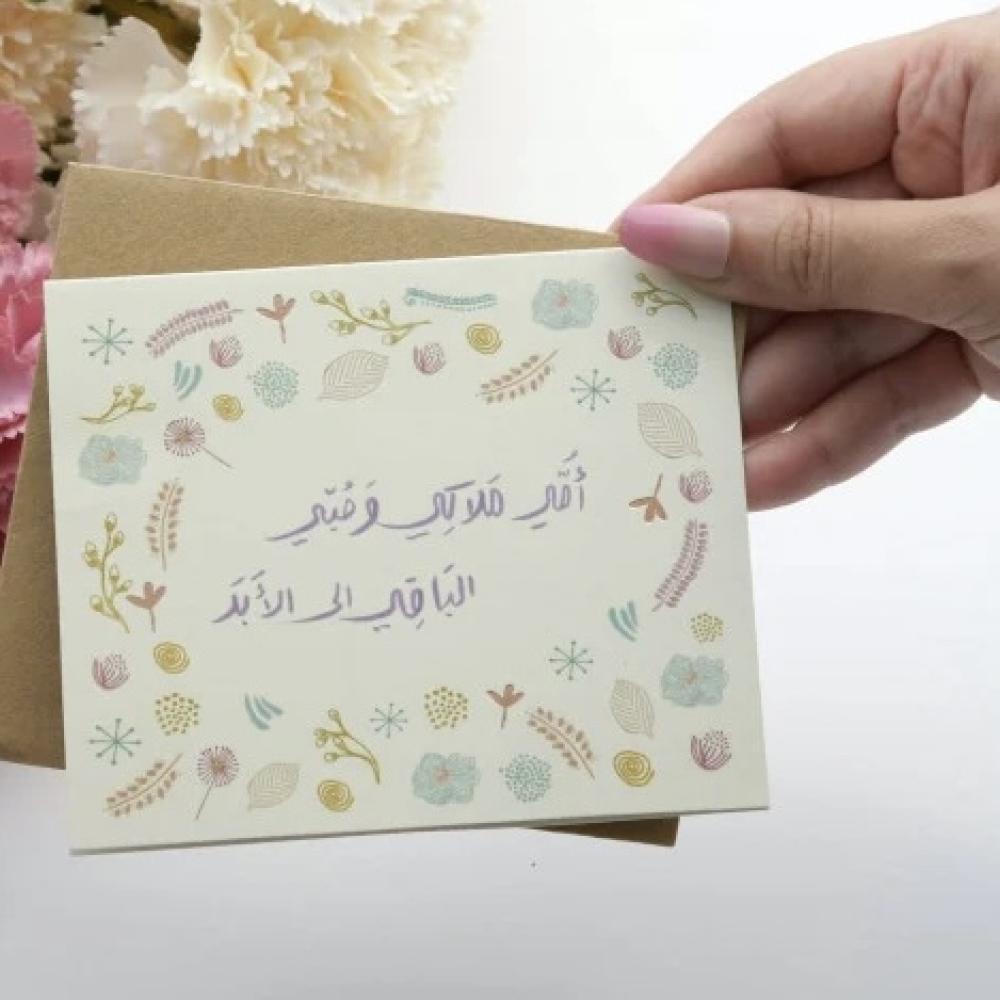 أُمَّي مَلاكِي وَحُبّي
البَاقِي الى الأَبَدَ